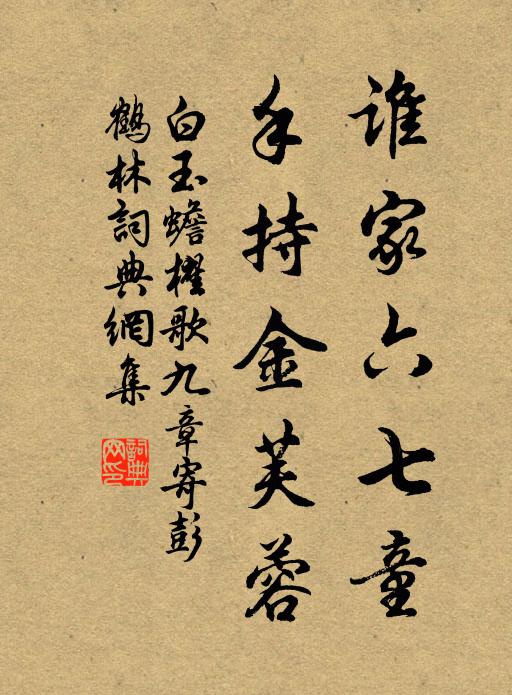 誰家六七童
手持金芙蓉
白玉蟾櫂歌九章寄彭
鶴林詞典網集
詞典網印